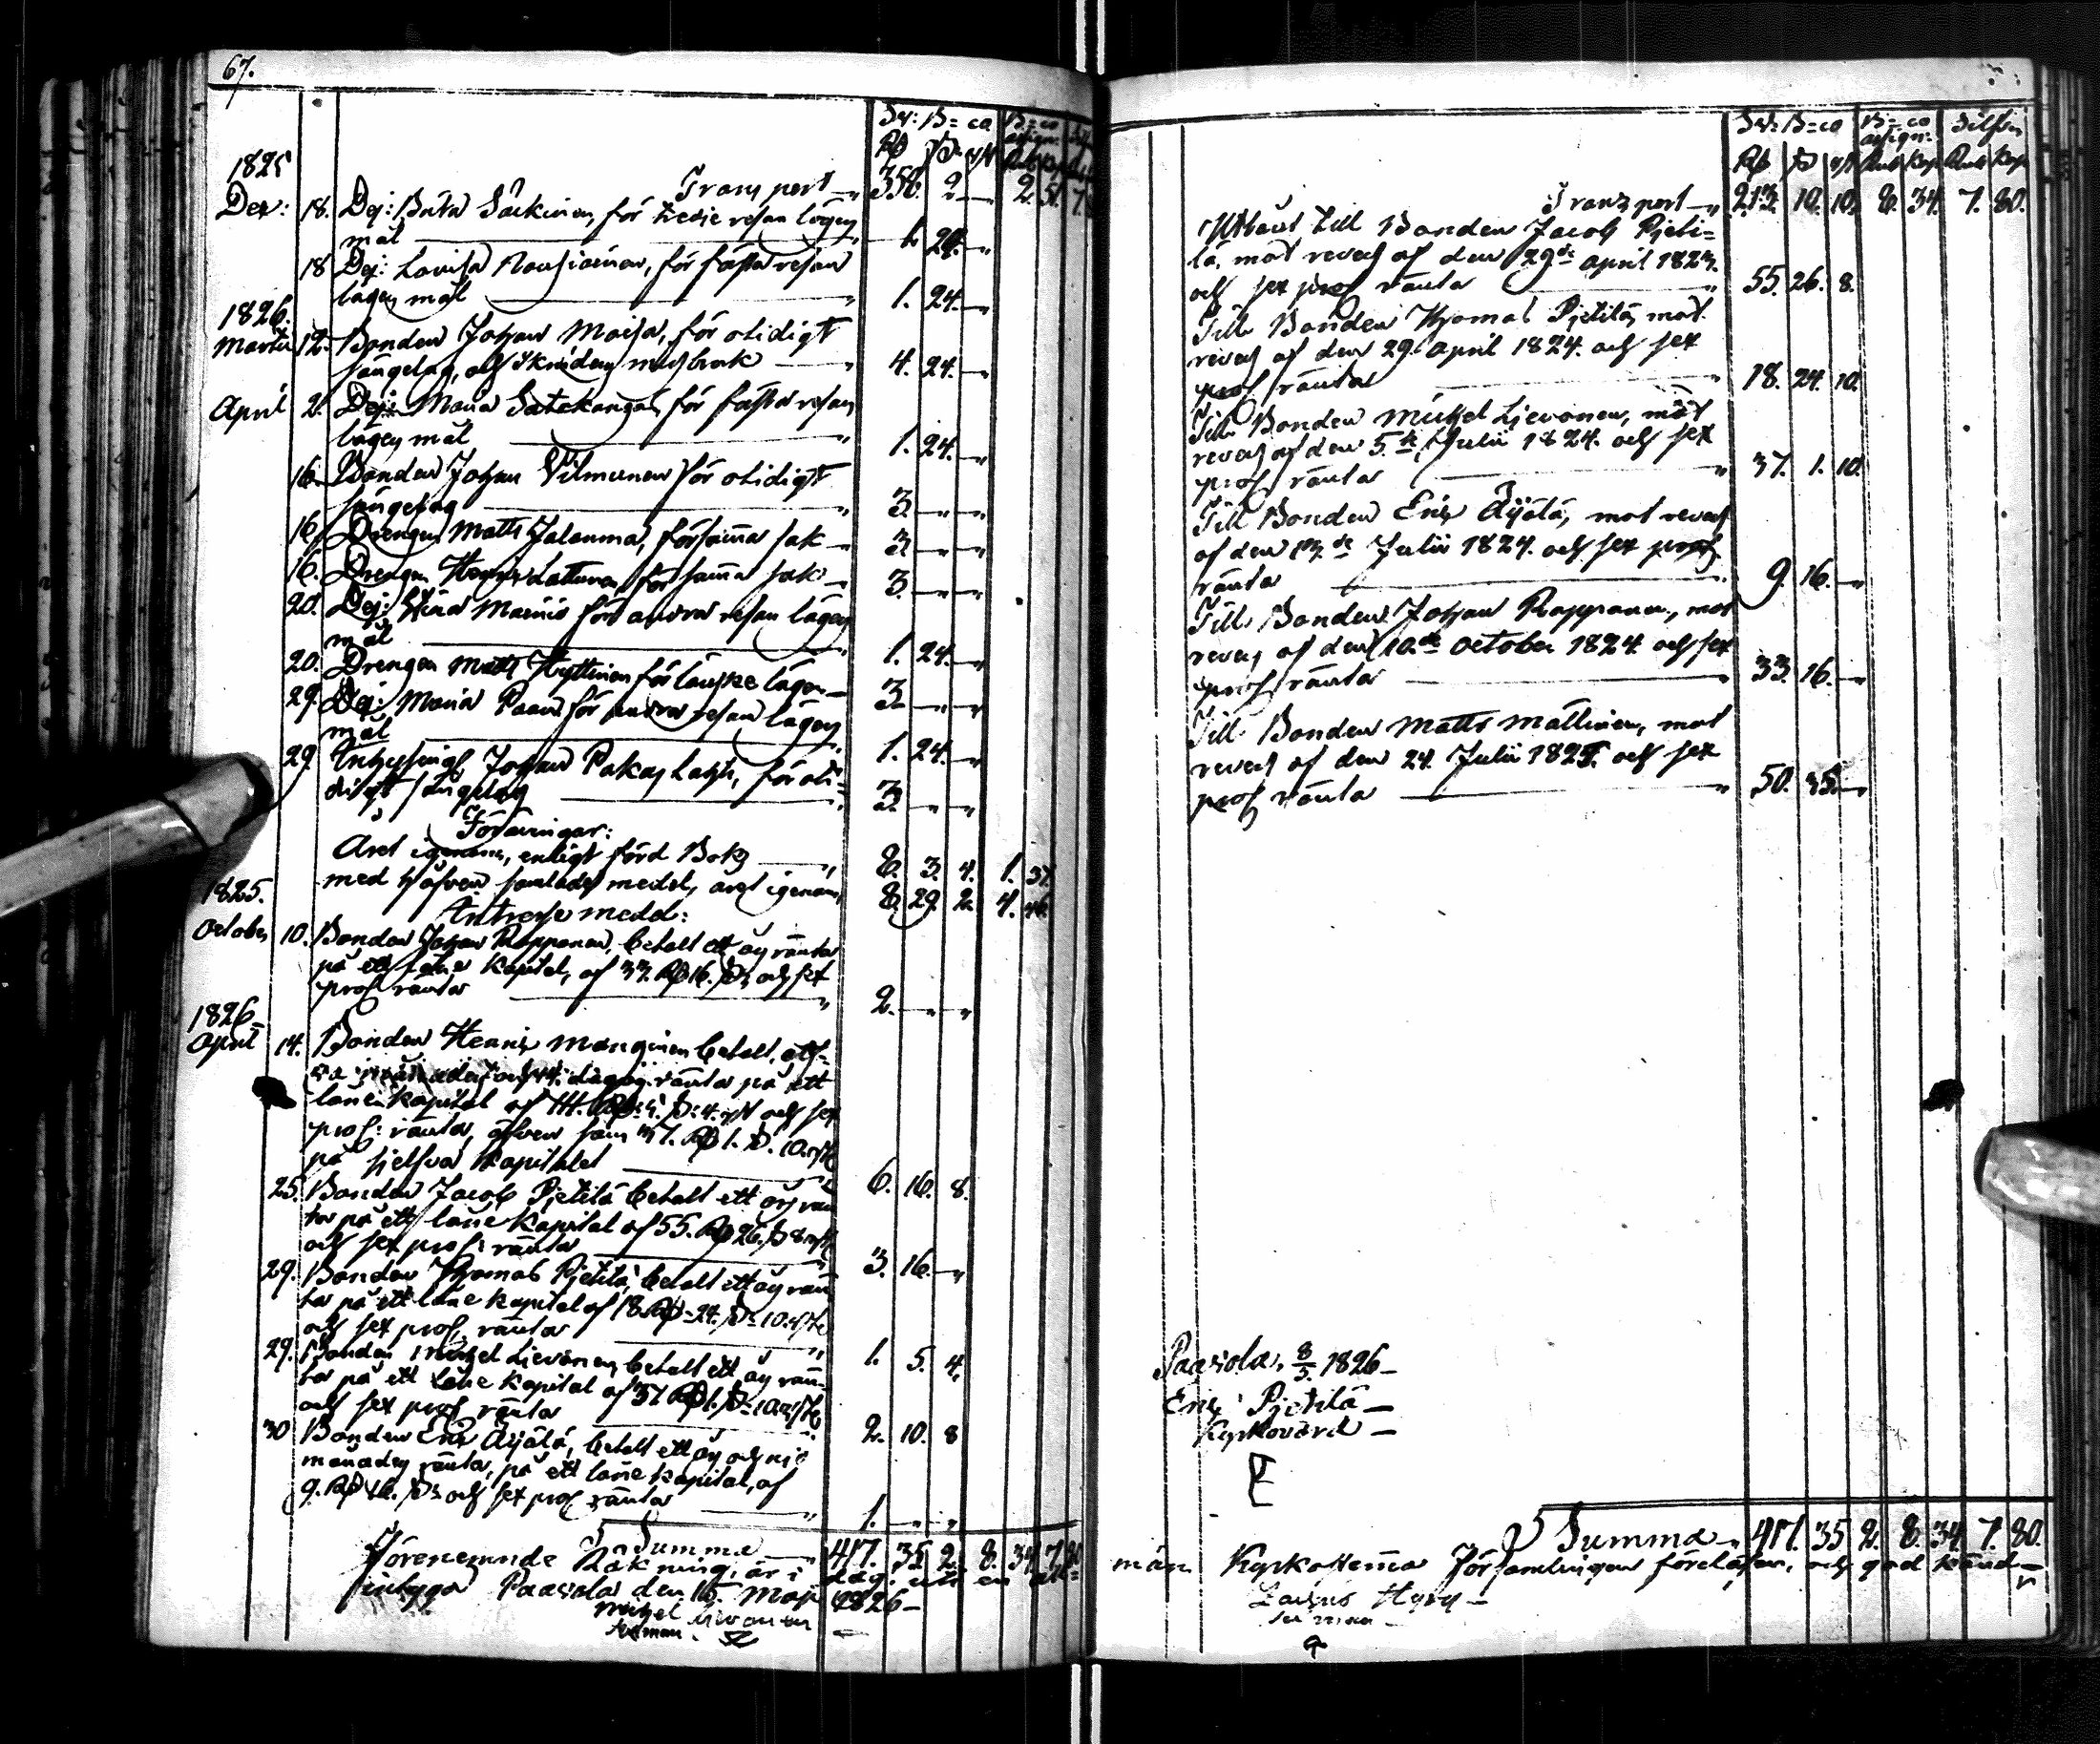 67.
Sv: B=co B=co asign: Silf
Rd ß rst Rub Kop
1825 Transport — 356. 2 — 2. 51. 7.
Dex: 18. Dej: Brita Säckinen, för tredje resan läger
mål — 1. 24. „
18 Dej: Lovisa Rousiainen, för första resan
lägersmål — 1. 24. „
1826.
Martii 12. Bonden Johan Moisa, för otidigt
sängelag, och skriftens missbruk — 4. 24. „
April 2. Dej: Maria Satakangas för första resan
lägersmål — 1. 24. „
16. Bonden Johan Vilmunen för otidigt
sängelag — 3. „ „
16. Drengen Matts Jalonma, för samma sak — 3. „ „
16. Drengen Henric Latturen för samma sak — 3. „ „
20. Dej: Stina Marnis för andra resan lägers
mål — 1. 24. „
20. Drengen Matts Hyttinen för lönske läger — 3. „ „
29. Dej: Maria Paan för andra resan lägers
mål — 1. 24. „
29 Inhysing Johan Pakaslahti, för oti-
digt sängelag — 3. „ „
Föräringar:
Året igenom, enligt förd Bok — 8. 3. 4. 1. 37.
med håfven samlade medel, året igenom, 8. 29. 2. 4. 46.
1825. Intresse medel:
October 10. Bonden Johan Rapponen, betalt ett års ränta
på ett låne Kapital, af 33. Rd 16. ß och sex
proc ränta — 2. „ „
1826
April 14. Bonden Henric Manginen betalt, ott-
månader och 14 dagars ränta på ett
låne Kapital af 111. Rd: 5. ß: 4. rst och sex
proc: ränta, äfven som 37. Rd 1. ß. 10. rst
på sjelfva Kapitalet — 6. 16. 8.
25. Bonden Jacob Pjetilä betalt ett års rän
ta på ett låne Kapital af 55. Rd 26. ß 8 rst
och sex proc: ränta — 3. 16. „
29. Bonden Thomas Pjetilä, betalt ett års rän
ta på ett låne Kapital af 18 Rd 24. ß 10. rst
och sex proc. ränta — 1. 5. 4.
29. Bonden Michel Lievonen, betalt ett års rän-
ta på ett låne Kapital af 37 Rd 1. ß 10. rst
och sex proc ränta — 2. 10. 8
30 Bonden Eric Äijälä, betalt ett års och nio
månaders ränta, på ett låne Kapital, af
9. Rd 16. ß och sex proc ränta — 1. „ „
Summa 417. 35 2. 8. 34 7. 80
Förenemnde Räkning, är i dag uti en all-
intygar Paavola den 15. Maji 1826 —
Michel Liwonen
Sexman.
Sv: B=co B=co asign: Silfver
Rd ß rst Rub Kop Rub Kop
Transport — 213. 10. 10. 8. 34. 7. 80.
Utlånt till Bonden Jacob Pjeti-
lä, mot revers af den 29de april 1823.
och sex proc ränta — 55. 26. 8.
Till Bonden Thomas Pjetilä, mot
revers af den 29. April 1824. och sex
proc ränta — 18. 24. 10.
Till Bonden Michel Lievonen, mot
revers af den 5.te Julii 1824. och sex
proc ränta — 37. 1. 10.
Till Bonden Eric Äijälä, mot revers
af den de Julii 1824. och sex proc
ränta — 9. 16. „
Till Bonden Johan Rapponen, mot
revers af den 10.de October 1824. och sex
proc ränta — 33. 16. „
Till Bonden Matts Mattinen, mot
revers af den 24. Julii 1825. och sex
proc ränta — 50. 35. „
Paavola, 8/5. 1826 —
Eric Pjetilä —
Kyrkovärd —
Summa — 417. 35 2. 8. 34. 7. 80.
män Kyrkostemma Församlingen föreläsen, och god känd —
Hyry —